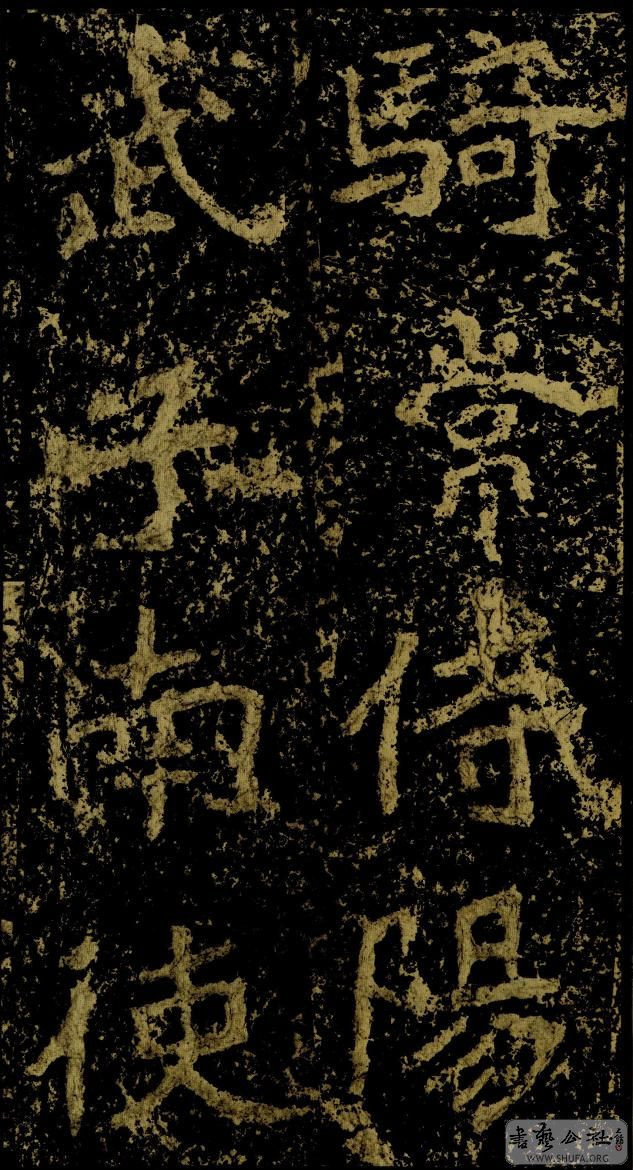 騎常侍陽
武子南使
書藝公社
WWW.SHUFA.ORG